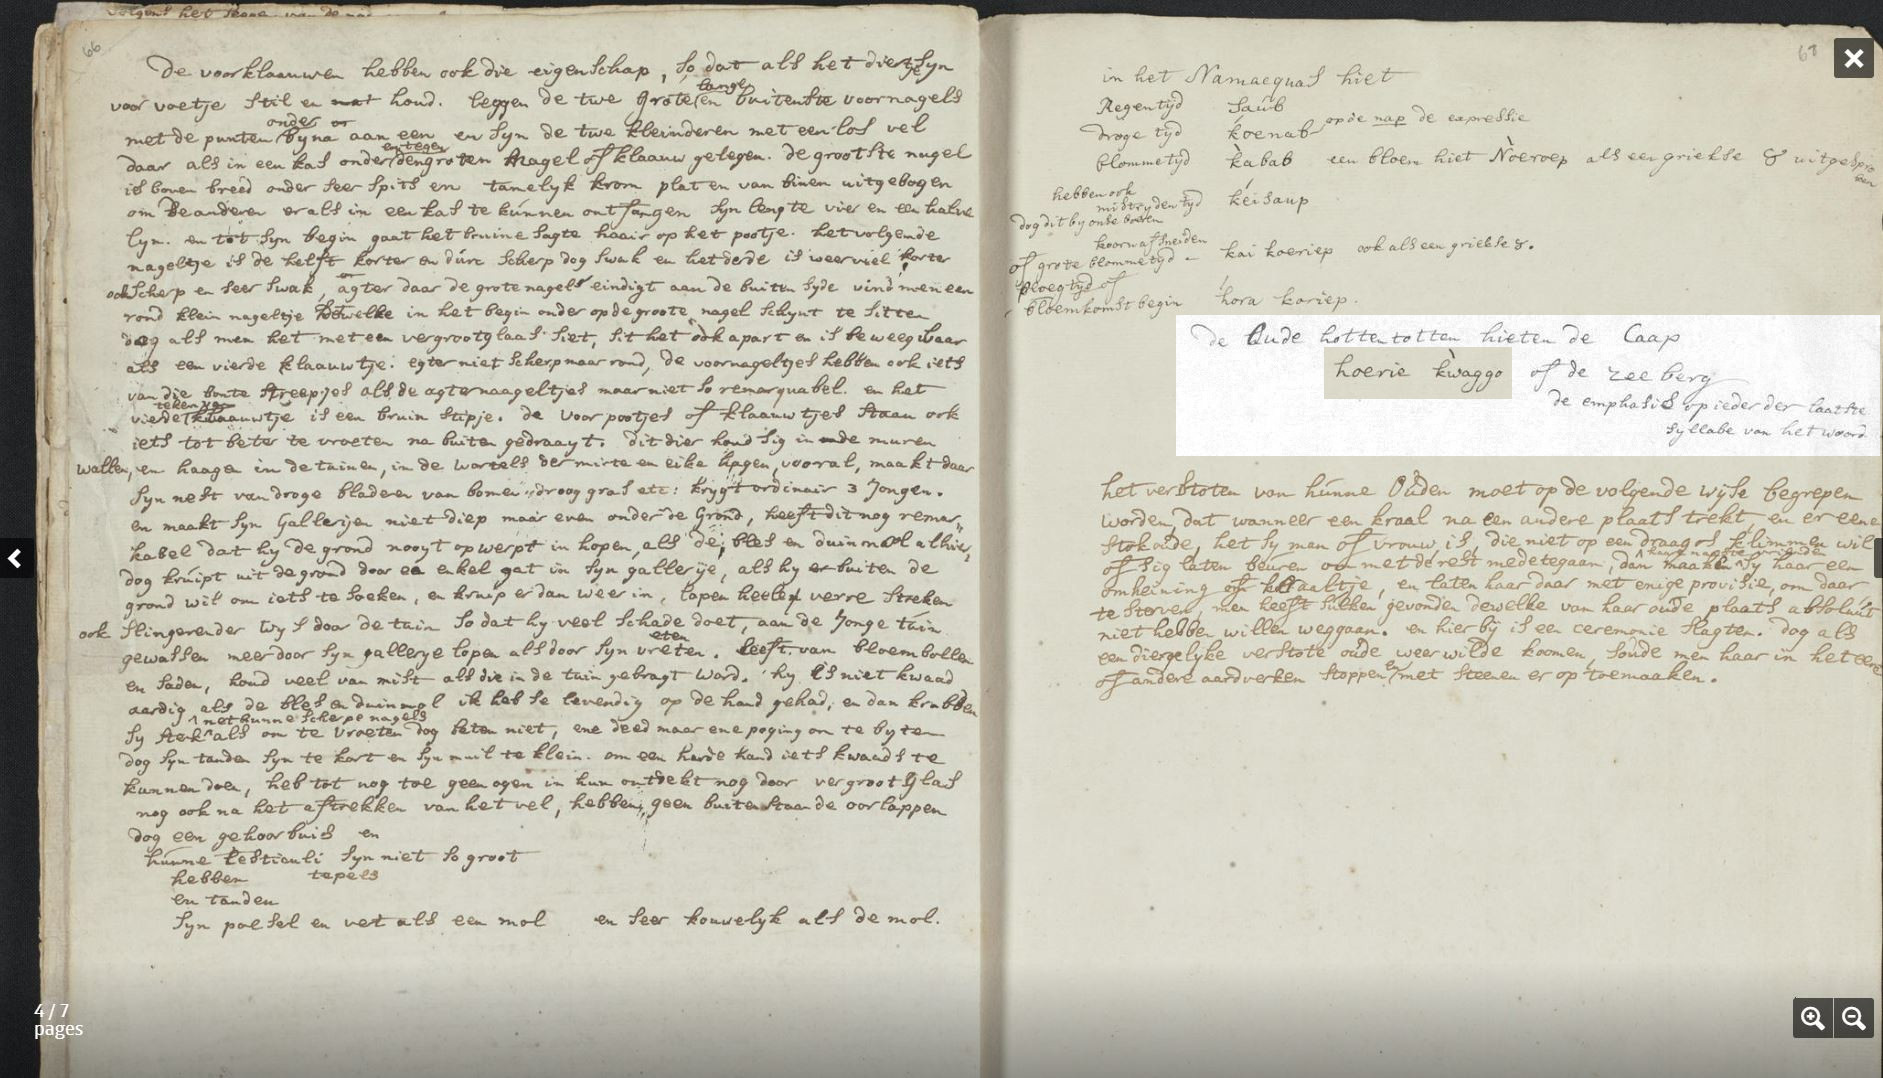 66
De voorklaauwen hebben ook die eigenschap, so dat als het diertje syn
voor voetje stil en houd. leggen de twe grote en lange buitenste voornagels
met de punten onder byna aan een en syn de twe kleinderen met een los vel
daar als in een kas onder en tegen den groten nagel of klaauw gelegen. de grootste nagel
is boven breed onder seer spits en tamelyk krom plat en van binnen uitgebogen
om de anderen er als in een kas te kunnen ontfangen syn lengte vier en een halve
lyn. en tot syn begin gaat het bruine sagte haair op het pootje. het volgende
nageltje is de helft korter en dun scherp dog swak en het derde is weer viel korter
ook scherp en seer swak, agter daar de grote nagel eindigt aan de buiten syde vind men een
rond klein nageltje dewelke in het begin onder op de groote nagel schynt te sitten
dog als men het met een vergrootglaas siet, sit het ook apart en is beweegbaar
als een vierde klaauwtje: egter niet scherp maar rond, de voornageltjes hebben ook iets
van die bonte streepjes als de agternaageltjes maar niet so remarquabel. en het
vierde klaauwtje is een bruin stipje. de voorpootjes of klaauwtjes staan ook
iets tot beter te vroeten na buiten gedraayt. dit dier houd sig in de muren
wallen, en haagen in de tuinen, in de wortels der mirte en eike hagen, vooral, maakt daar
syn nest van droge bladeren van bomen, droog gras etc: krygt ordinair 3 jongen.
en maakt syn gallerijen niet diep maar even onder de grond, heeft dit nog remar,,
kabel dat hy de grond nooyt opwerpt in hopen, als de bles en duinmol alhier,
dog kruipt uit de grond door een enkel gat in syn gallerije, als hy buiten de
grond wil om iets te soeken, en kruip er dan weer in, lopen heele verre streken
ook slingerender wys door de tuin so dat hy veel schade doet, aan de jonge tuin
gewassen meer door syn gallerye lopen als door syn vreten. leeft van bloembollen
en saden, houd veel van mist als die in de tuin gebragt word. hy is niet kwaad
aardig als de bles en duinmol ik heb se levendig op de hand gehad, en dan krabben
sy sterk met hunne scherpe nagels als om te vroeten dog beten niet, ene deed maar ene poging om te byten
dog syn tanden syn te kort en syn muil te klein. om een harde hand iets kwaads te
kunnen doen, heb tot nog toe geen ogen in hun ontdekt nog door vergroot glas
nog ook na het aftrekken van het vel, hebben geen buiten staande oorlappen
dog een gehoorbuis en
hunne testiculi syn niet so groot
hebben tepels
en tanden
syn poesel en vet als een mol en seer kouwelyk als de mol.
68
in het Namacquas hiet
Regentyd saub
droge tyd koenab op de nap de expressie
blommetyd kabab een bloem hiet Noeroep als een griekse & uitgesproken
hebben ook
misryden tyd keisaup
dog dit by onse boeren
koorn afsneiden
of grote blommetyd - kai koeriep ook als een griekse &.
ploegtyd of
bloemkomst begin hora koriep.
De Oude hottentotten hieten de Caap
hoerie kwaggo of de zee berg
de emphasis op ieder der laatste
syllabe van het woord
het verstoten van hunne Ouden moet op de volgende wyse begrepen
worden, dat wanneer een kraal na een andere plaats trekt, en er eene
stokoude, het sy man of vrouw is, die niet op een draagos klimmen wil
of sig laten beuren om met de rest mede te gaan, dan maaken sy haar een
omheining of kraaltje, en laten haar daar met enige provisie, om daar
te sterven, men heeft sulken gevonden dewelke van haar oude plaats absoluut
niet hebben willen weggaan. en hier by is een ceremonie slagten. dog als
een diergelyke verstote oude weer wilde koomen, soude men haar in het eene
of andere aardverken stoppen en met steenen er op toemaaken.
4 / 7
pages